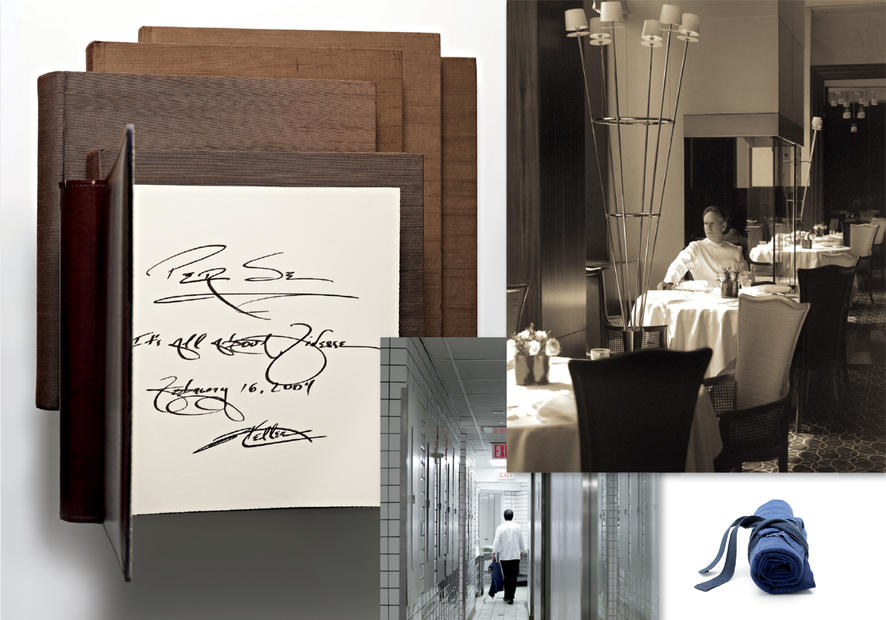 Per Se
It's All About Finesse
February 16, 2004
Keller
EXIT